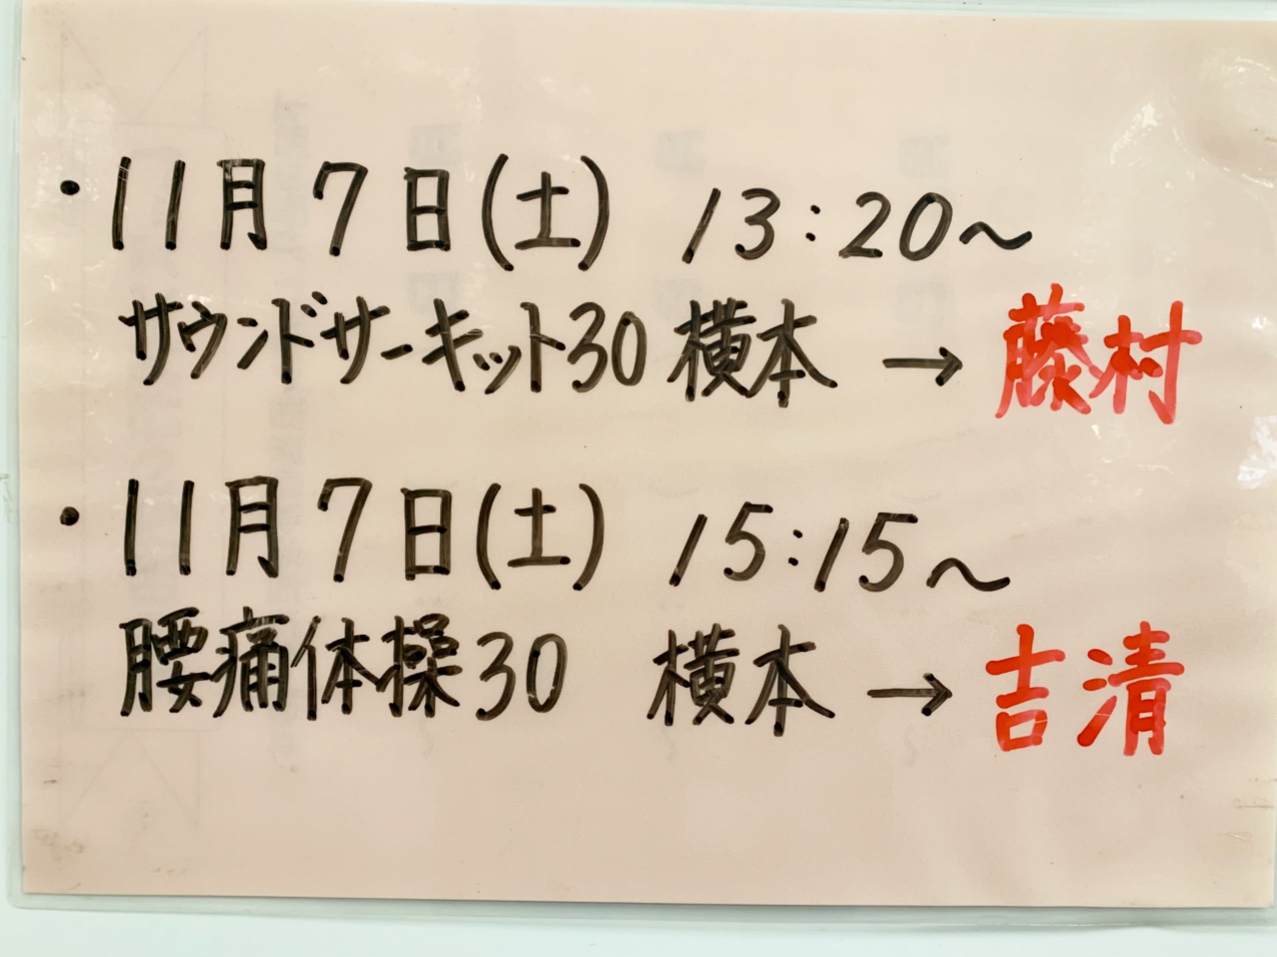 ・11月7日(土) 13:20〜
サウンドサーキット30 横本 → 藤村
・11月7日(土) 15:15〜
腰痛体操30 横本 → 吉清